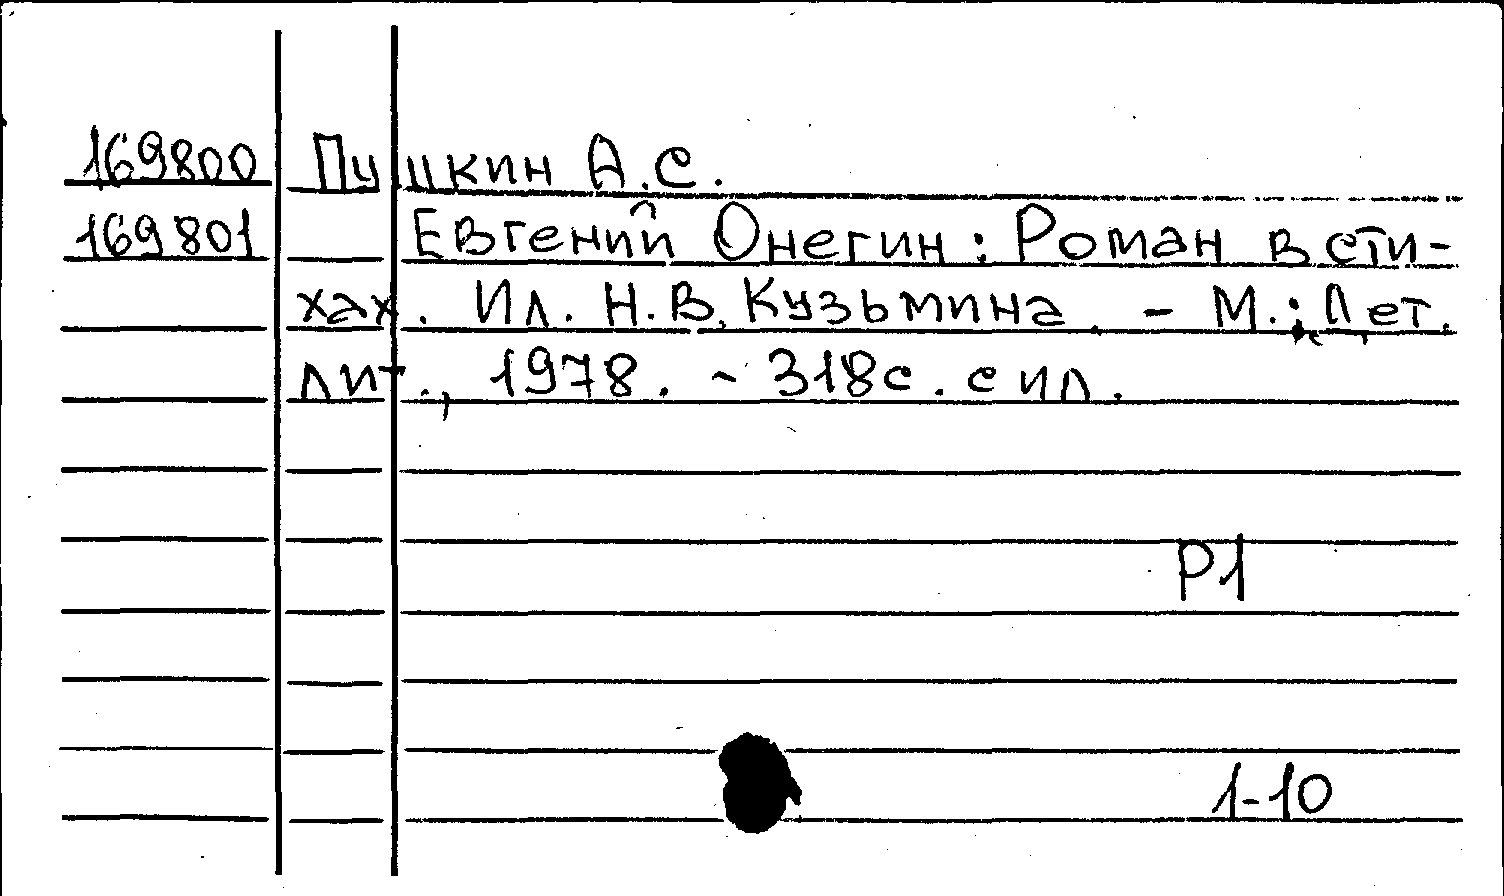 169800 Пушкин А.С.
169801 Евгений Онегин : Роман в сти-
хах. Ил. Н.В. Кузьмина. - М.: Дет.
лит., 1978. - 318с. с ил.
Р1
1-10